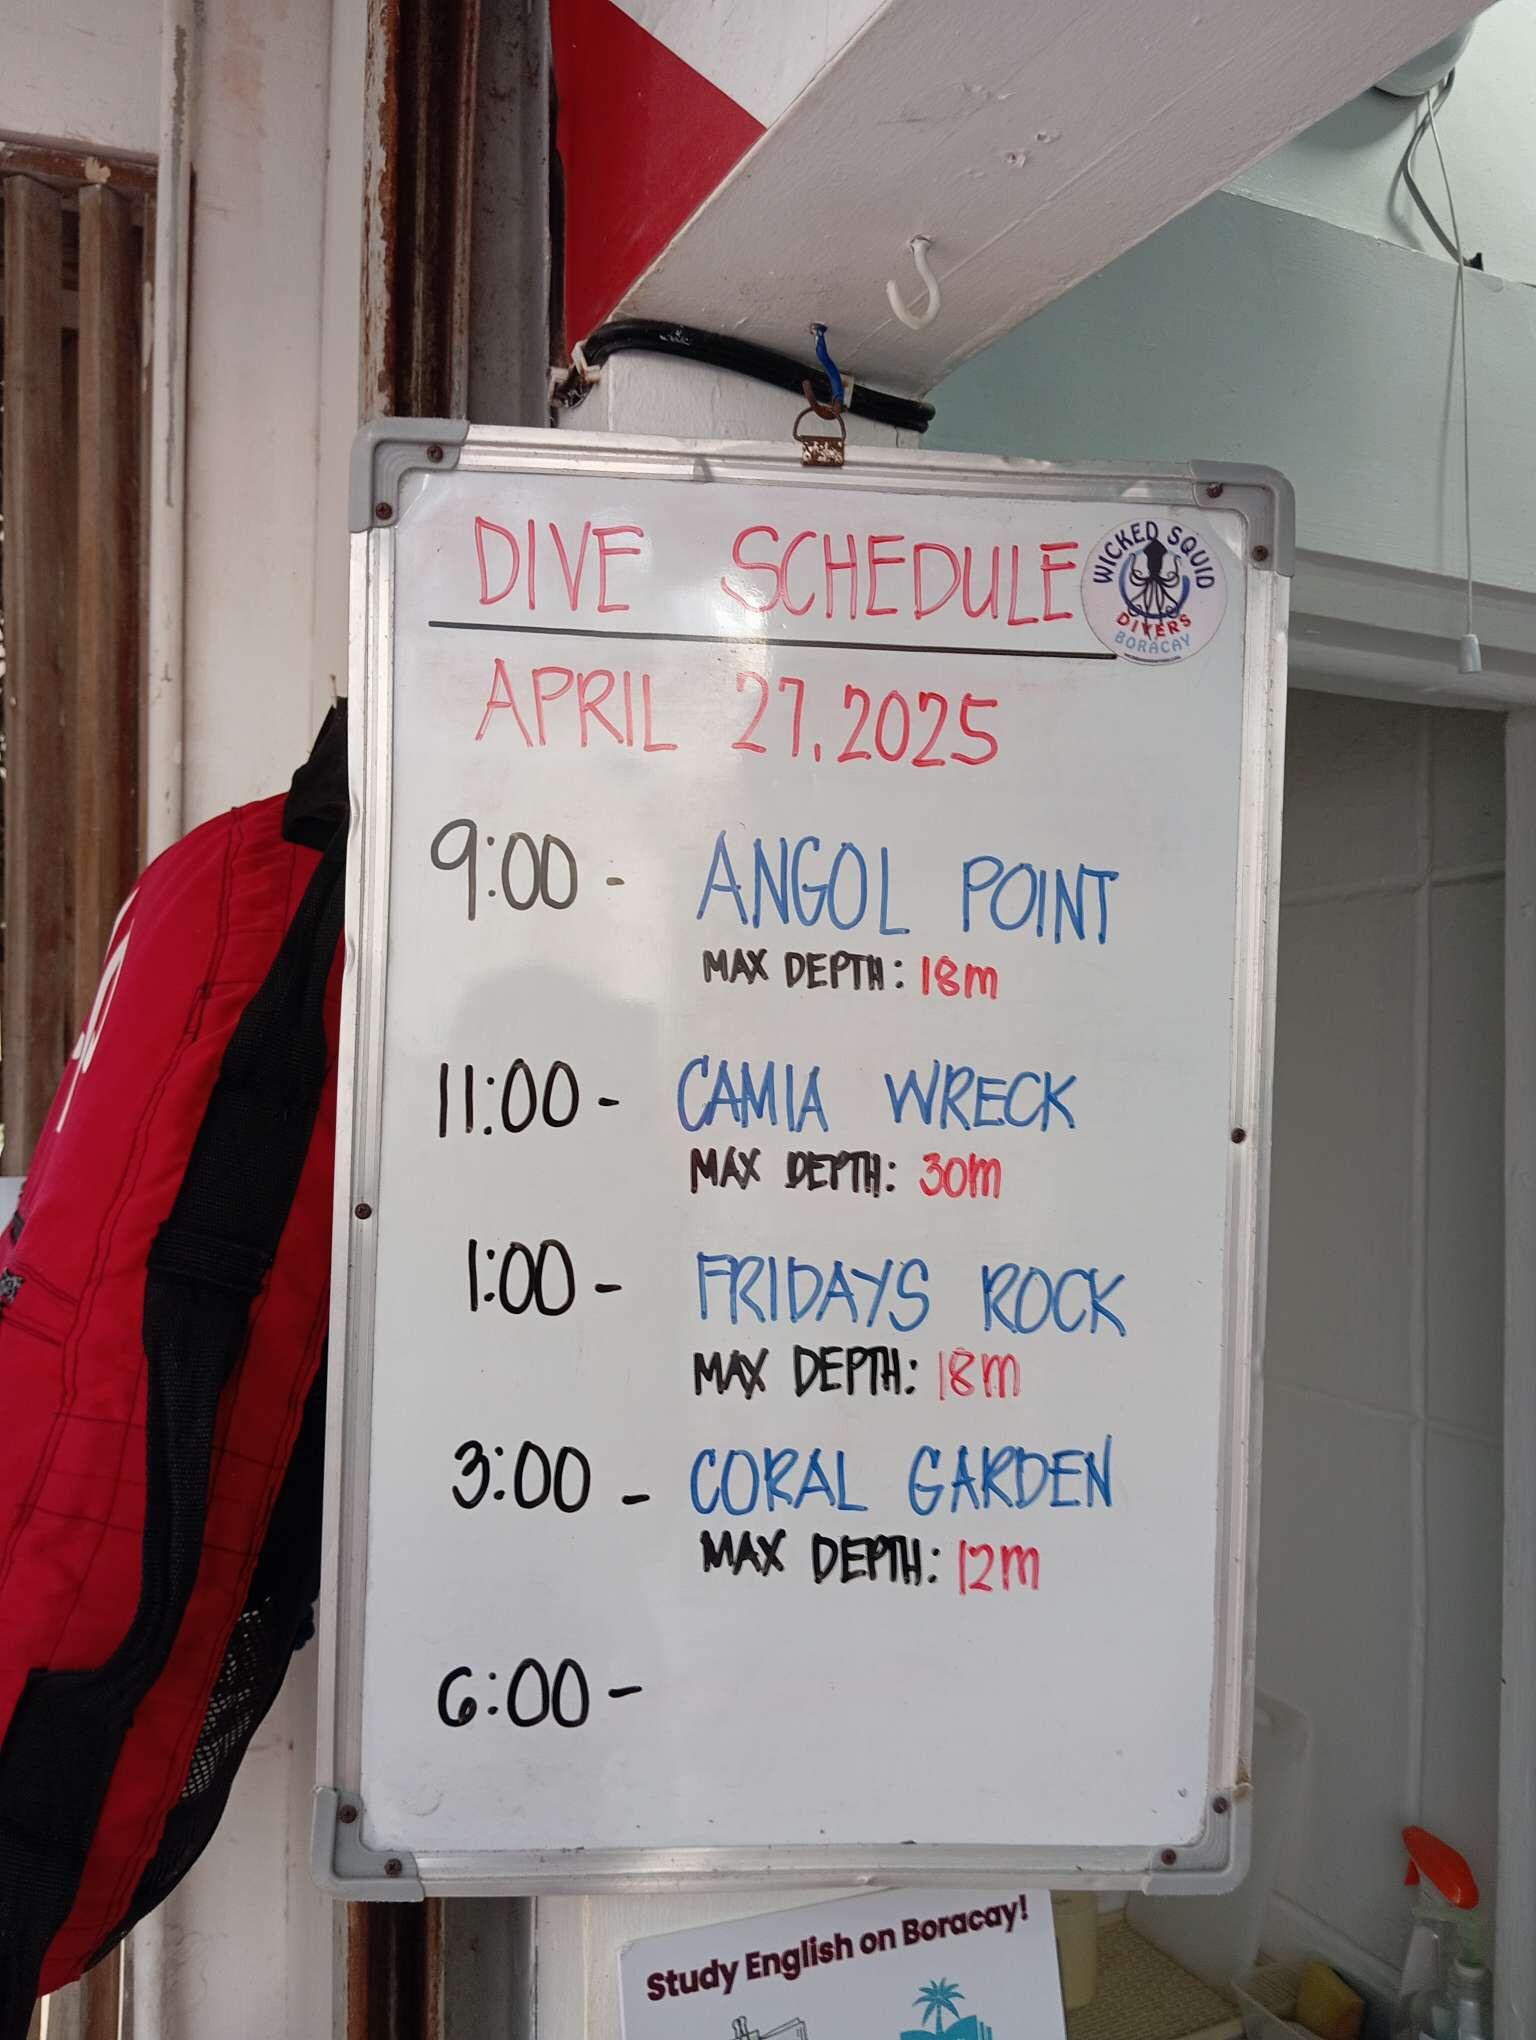 DIVE SCHEDULE
WICKED SQUID
DIVERS
BORACAY
APRIL 27.2025
9:00 - ANGOL POINT
MAX DEPTH: 18m
11:00 - CAMIA WRECK
MAX DEPTH: 30m
1:00 - FRIDAYS ROCK
MAX DEPTH: 18m
3:00 - CORAL GARDEN
MAX DEPTH: 12m
6:00 -
Study English on Boracay!